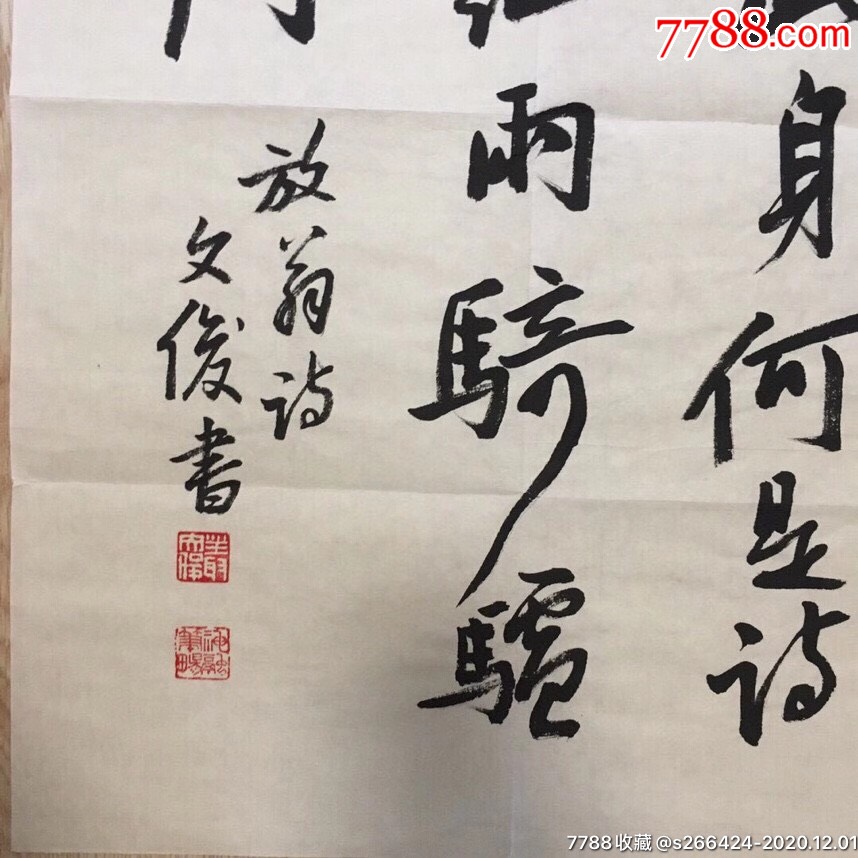 7788.com
身何是詩
雨騎驢
放翁詩
文俊書
7788收藏@s266424-2020.12.01